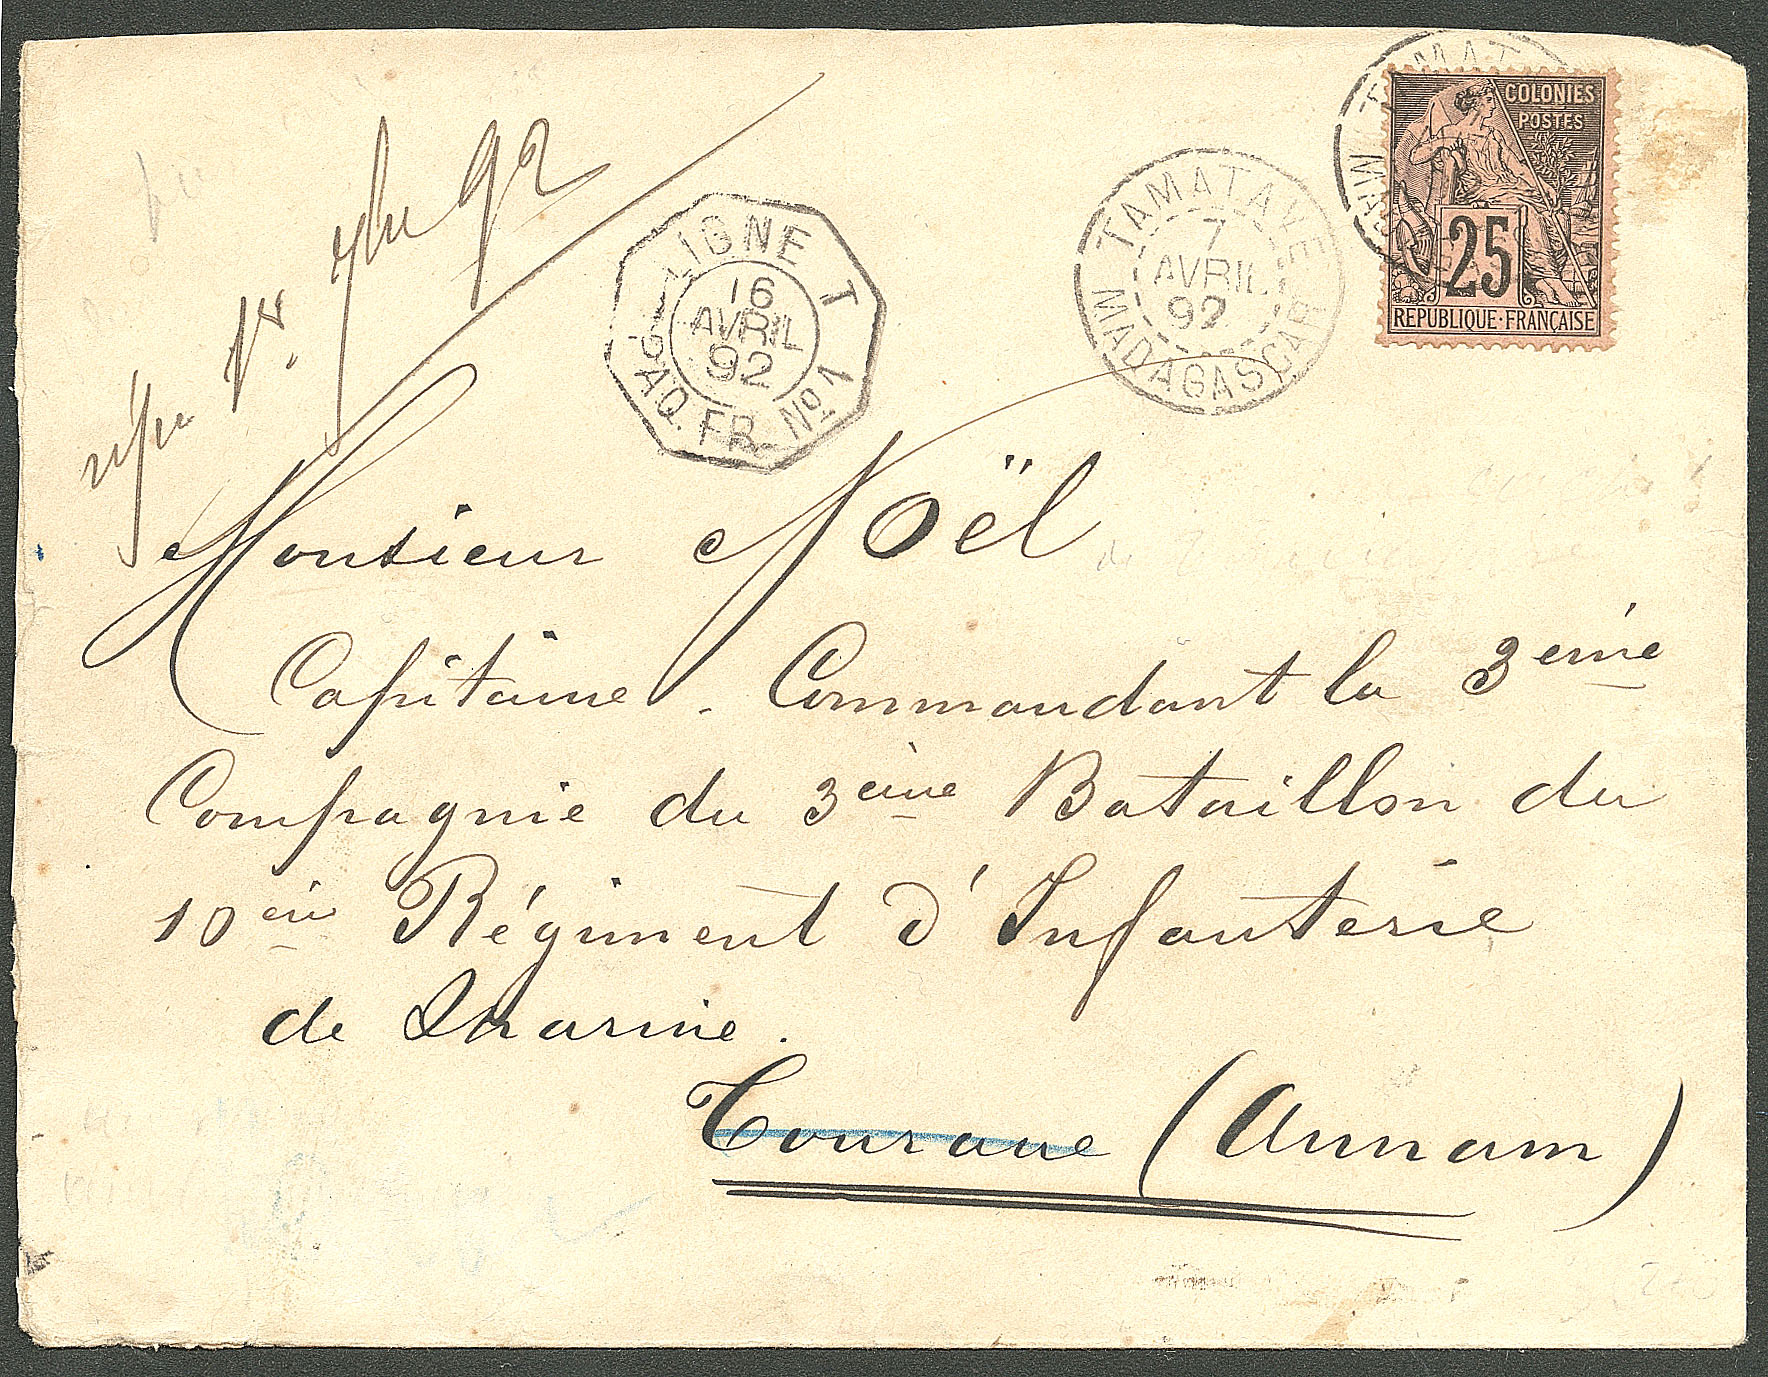 COLONIES
POSTES
25
REPUBLIQUE·FRANÇAISE
TAMATAVE
7
AVRIL
92
MADAGASCAR
LIGNE T
16
AVRIL
92
PAQ. FR. Nº 1
92
Monsieur Noël
Capitaine. Commandant la 3ème
Compagnie du 3ème Bataillon du
10ème Régiment d'Infanterie
de Marine.
Tourane (Annam)